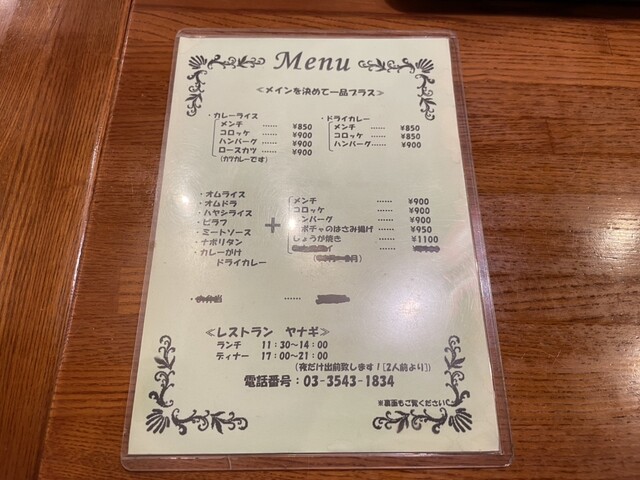 Menu
≪メインを決めて一品プラス≫
・カレーライス
メンチ …… ¥850
コロッケ …… ¥900
ハンバーグ …… ¥900
ロースカツ …… ¥900
(カツカレーです)
・ドライカレー
メンチ …… ¥850
コロッケ …… ¥850
ハンバーグ …… ¥900
・オムライス
・オムドラ
・ハヤシライス
・ピラフ
・ミートソース
・ナポリタン
・カレーがけ
ドライカレー
+
メンチ …… ¥900
コロッケ …… ¥900
ハンバーグ …… ¥900
カボチャのはさみ揚げ …… ¥950
しょうが焼き …… ¥1100
≪レストラン ヤナギ≫
ランチ 11:30～14:00
ディナー 17:00～21:00
(夜だけ出前致します![2人前より])
電話番号:03-3543-1834
※裏面もご覧ください